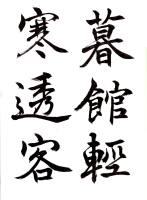 暮館輕
寒透客